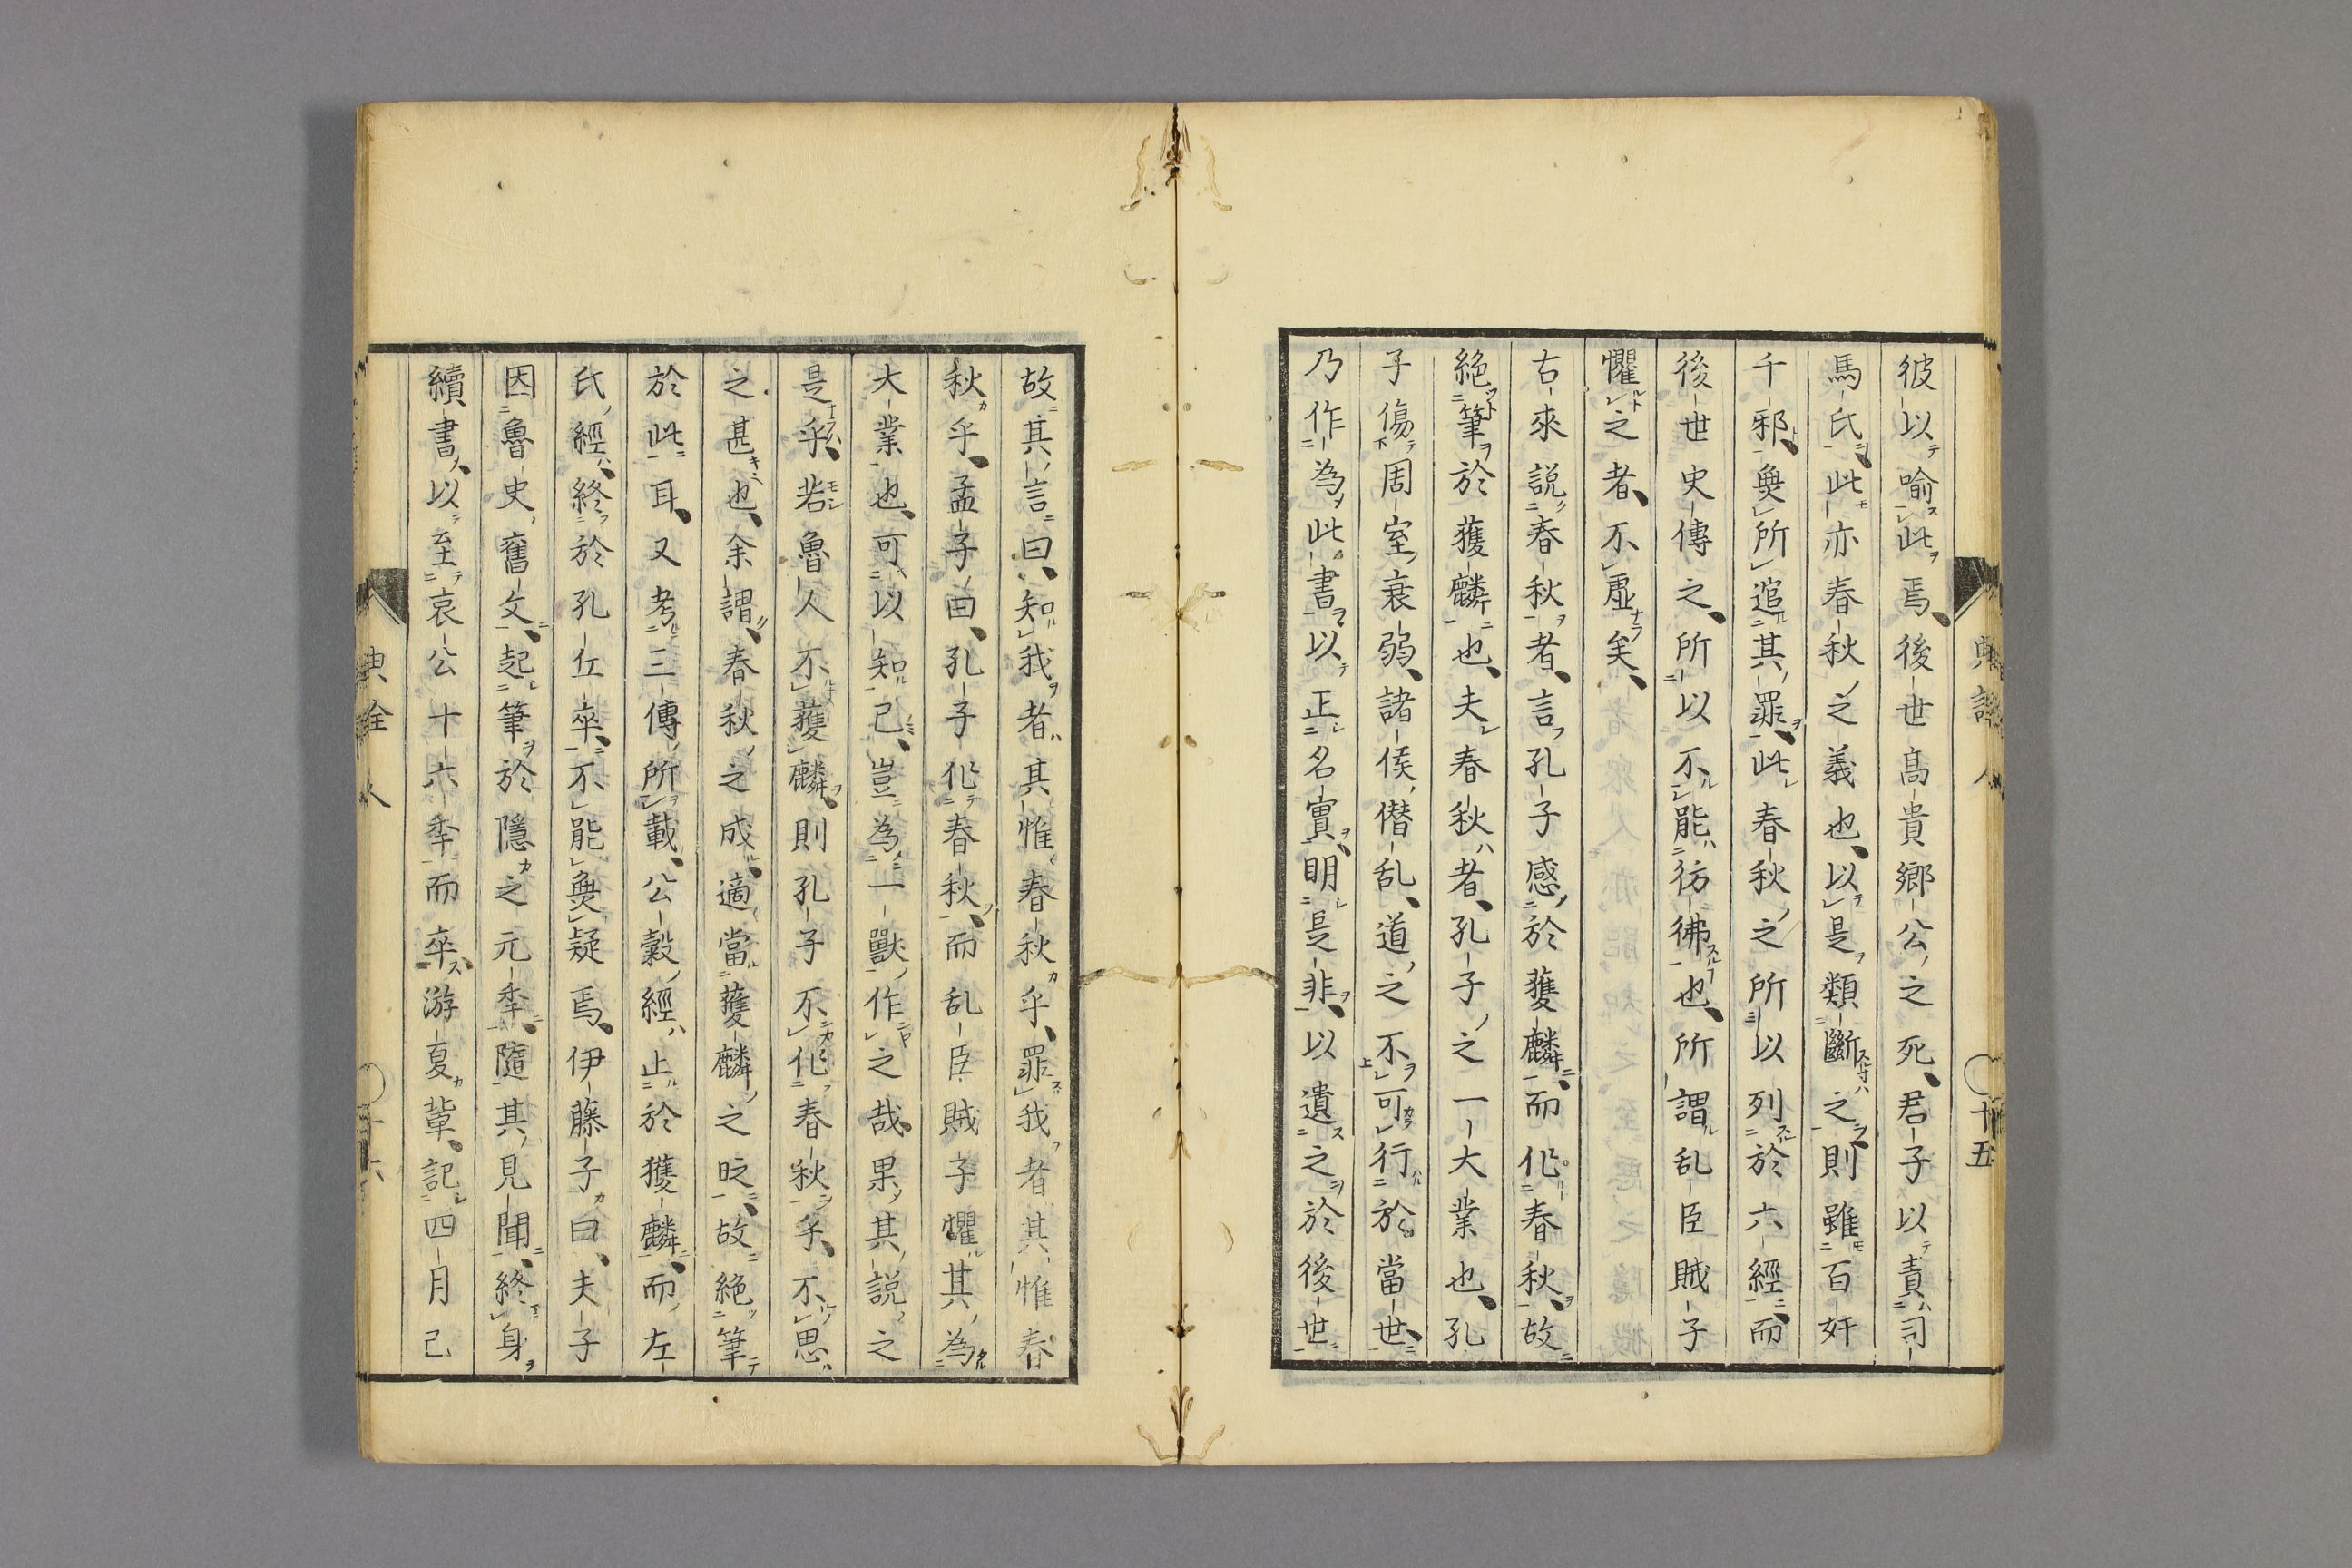 彼以喻此焉後世高貴鄉公之死君子以責司
馬氏此亦春秋之義也以是類斷之則雖百奸
千邪無所逭其罪此春秋之所以列於六經而
後世史傳之所以不能彷彿也所謂乱臣賊子
懼之者不虛矣
古來説春秋者言孔子感於獲麟而作春秋故
絶筆於獲麟也夫春秋者孔子之一大業也孔
子傷周室衰弱諸侯僭乱道之不可行於當世
乃作為此書以正名實明是非以遺之於後世
故其言曰知我者其惟春秋乎罪我者其惟春
秋乎孟子曰孔子作春秋而乱臣賊子懼其為
大業也可以知已豈為一獸作之哉果其説之
是乎若魯人不獲麟則孔子不作春秋乎不思
之甚也余謂春秋之成適當獲麟之時故絶筆
於此耳又考三傳所載公穀經止於獲麟而左
氏經終於孔丘卒不能無疑焉伊藤子曰夫子
因魯史舊文起筆於隱之元年隨其見聞終身
續書以至哀公十六年而卒游夏輩記四月己
十五